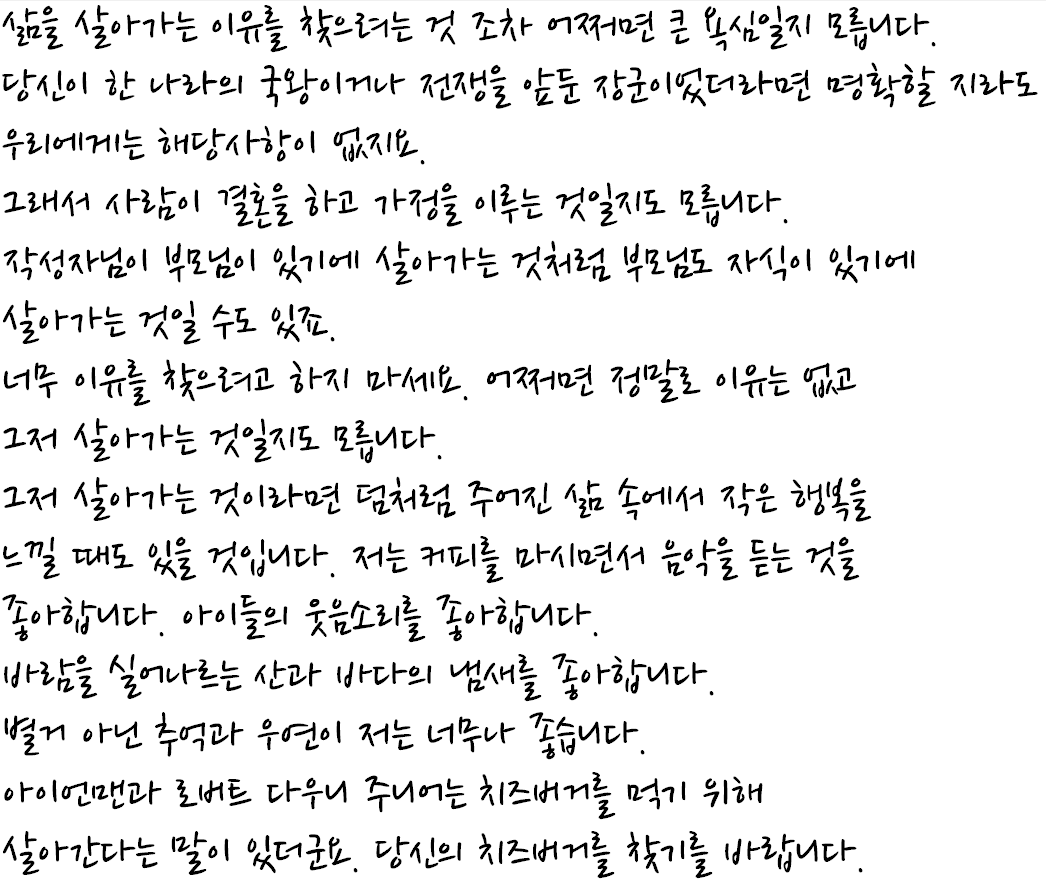 삶을 살아가는 이유를 찾으려는 것 조차 어쩌면 큰 욕심일지 모릅니다.
당신이 한 나라의 국왕이거나 전쟁을 앞둔 장군이었더라면 명확할 지라도
우리에게는 해당사항이 없지요.
그래서 사람이 결혼을 하고 가정을 이루는 것일지도 모릅니다.
작성자님이 부모님이 있기에 살아가는 것처럼 부모님도 자식이 있기에
살아가는 것일 수도 있죠.
너무 이유를 찾으려고 하지 마세요. 어쩌면 정말로 이유는 없고
그저 살아가는 것일지도 모릅니다.
그저 살아가는 것이라면 덤처럼 주어진 삶 속에서 작은 행복을
느낄 때도 있을 것입니다. 저는 커피를 마시면서 음악을 듣는 것을
좋아합니다. 아이들의 웃음소리를 좋아합니다.
바람을 실어나르는 산과 바다의 냄새를 좋아합니다.
별거 아닌 추억과 우연이 저는 너무나 좋습니다.
아이언맨과 로버트 다우니 주니어는 치즈버거를 먹기 위해
살아간다는 말이 있더군요. 당신의 치즈버거를 찾기를 바랍니다.